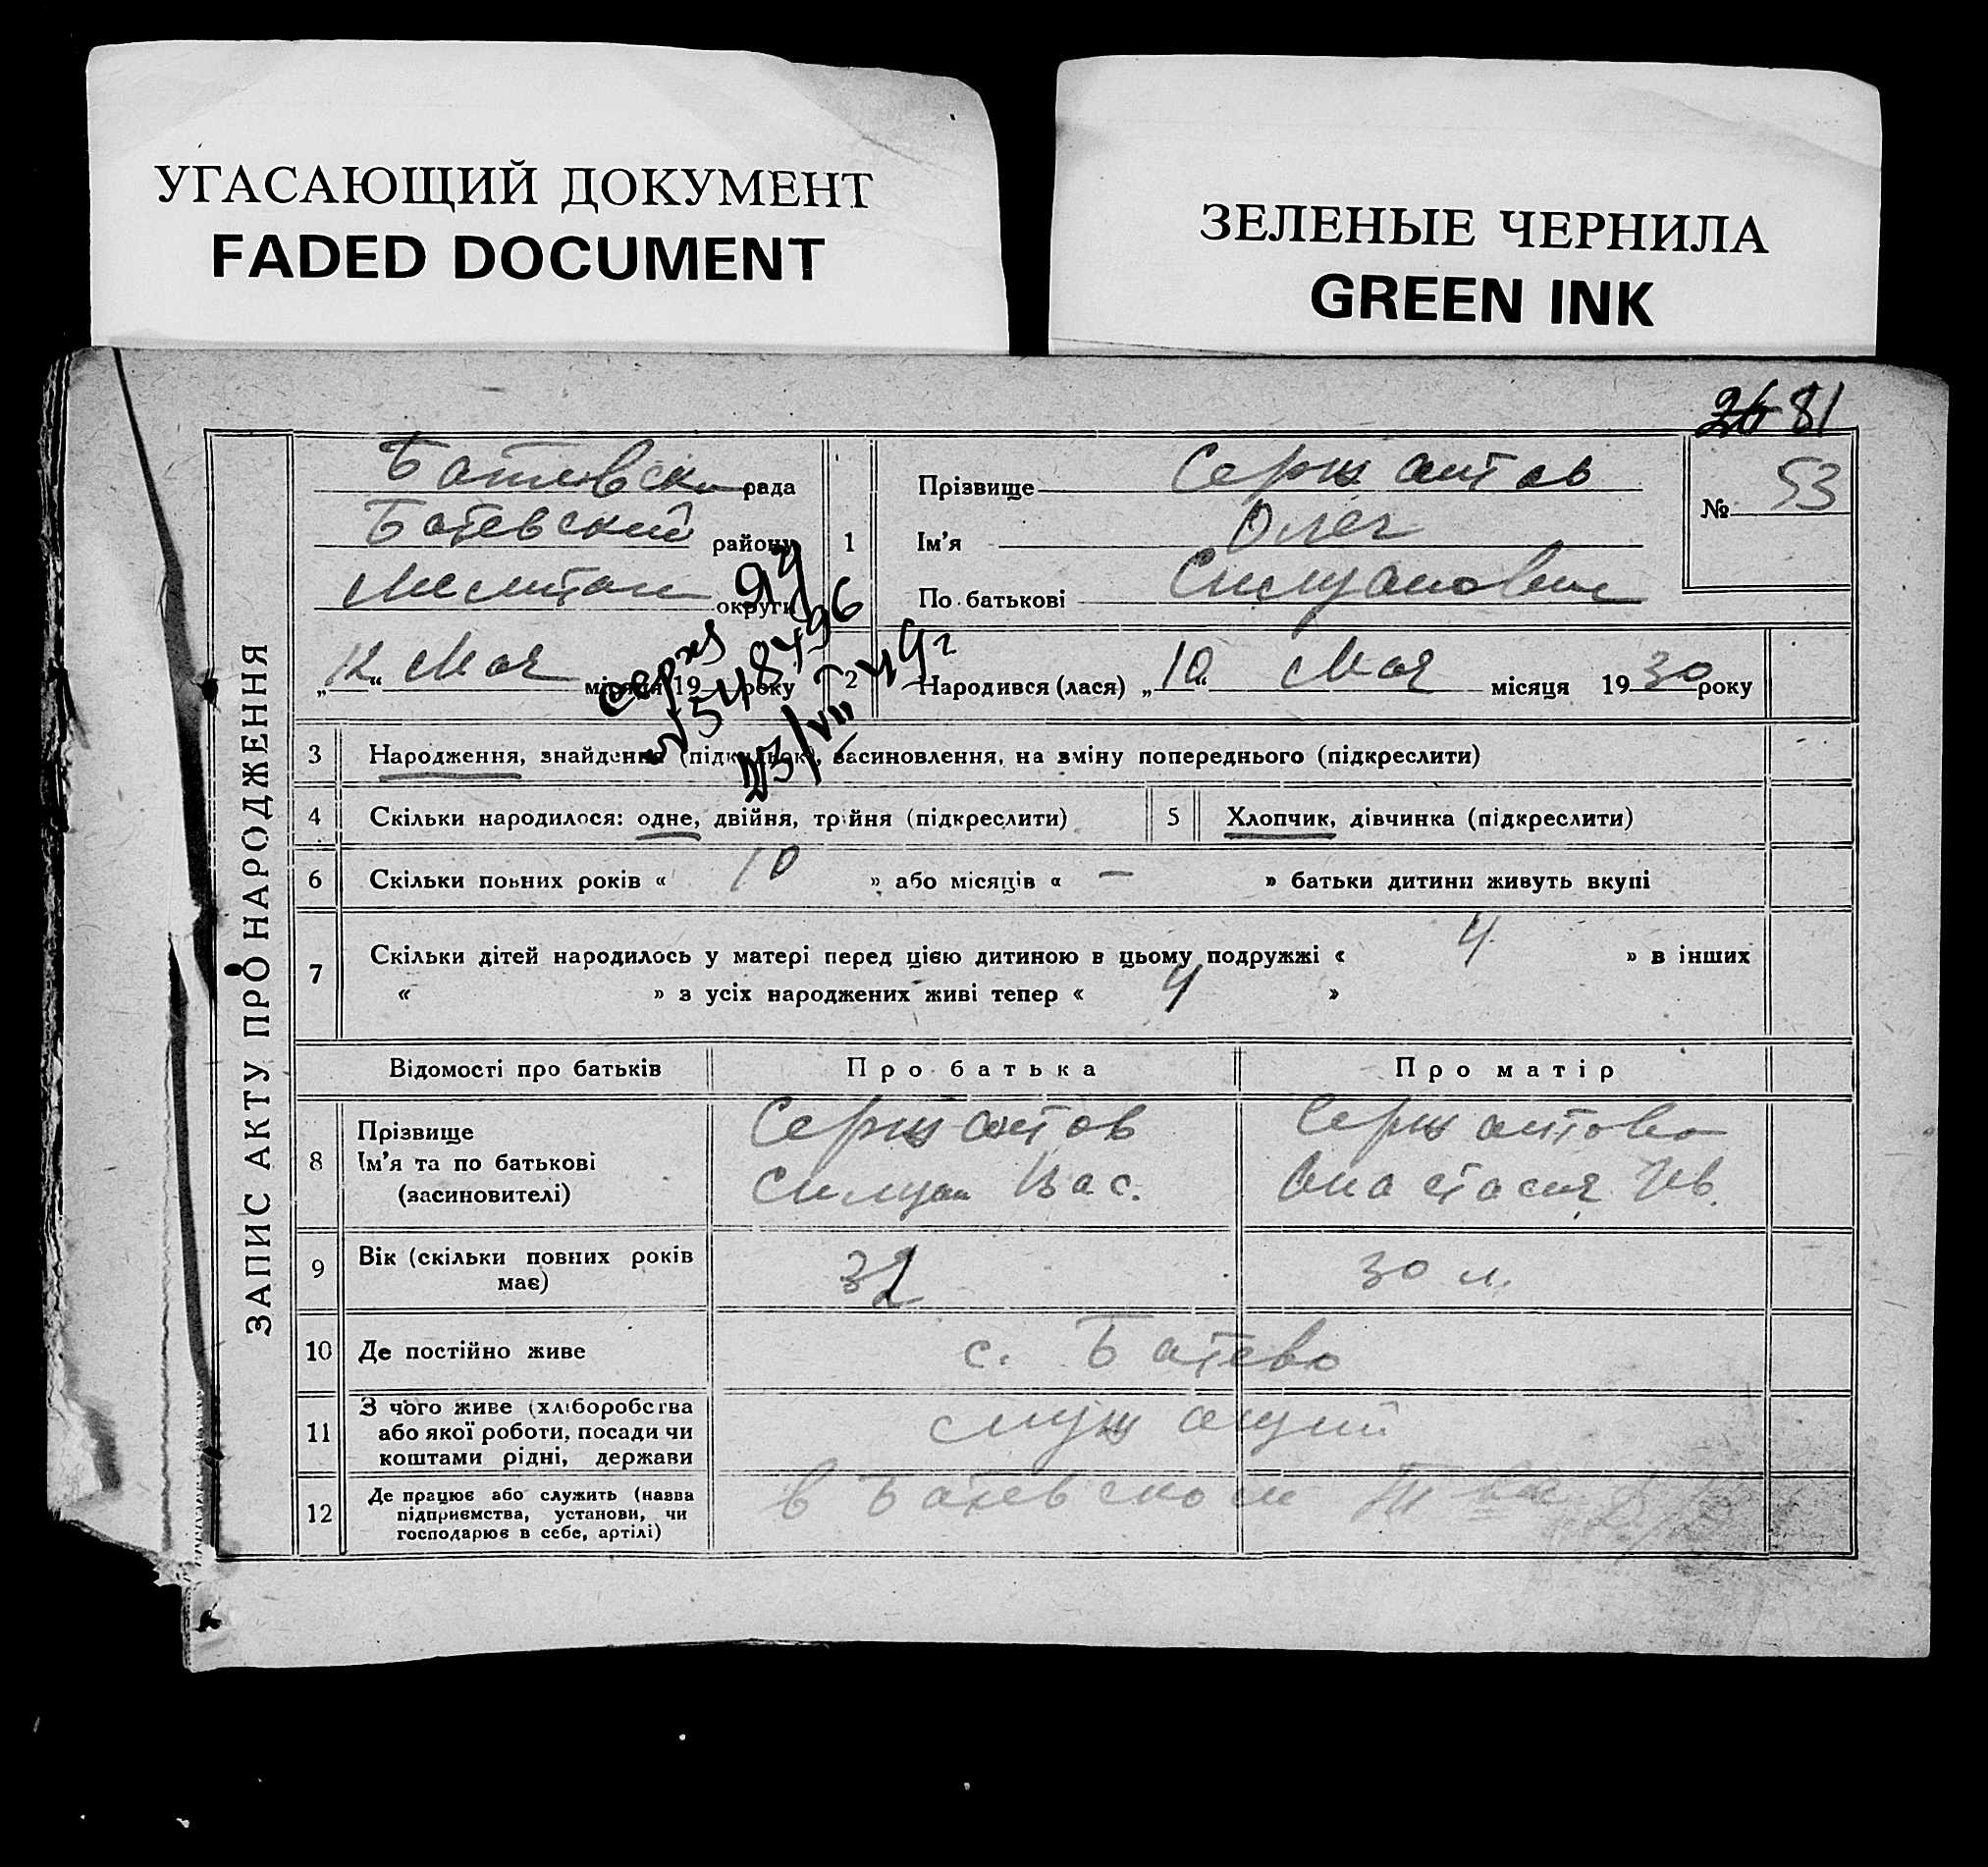 УГАСАЮЩИЙ ДОКУМЕНТ
FADED DOCUMENT
ЗЕЛЕНЫЕ ЧЕРНИЛА
GREEN INK
26 81
ЗАПИС АКТУ ПРО НАРОДЖЕННЯ
рада
Ботевский району
округи
„12“ Мая місяця 19 року
1
Прізвище Сержантов
Ім'я Олег
По батькові Силуанович
№ 53
2 Народився (лася) „10“ Мая місяця 1930 року
3 Народження, знайдення (підкидьок), засиновлення, на зміну попереднього (підкреслити)
4 Скільки народилося: одне, двійня, трійня (підкреслити)
5 Хлопчик, дівчинка (підкреслити)
6 Скільки повних років « 10 » або місяців « — » батьки дитини живуть вкупі
7 Скільки дітей народилось у матері перед цією дитиною в цьому подружжі « 4 » в інших
« » з усіх народжених живі тепер « 4 »
Відомості про батьків
Про батька
Про матір
8 Прізвище
Ім'я та по батькові
(засиновителі)
Сержантов
Силуан Вас.
Сержантова
Анастасия Ив.
9 Вік (скільки повних років
має)
32
30 л.
10 Де постійно живе
с. Ботево
11 З чого живе (хліборобства
або якої роботи, посади чи
коштами рідні, держави
служащий
12 Де працює або служить (назва
підприємства, установи, чи
господарює в себе, артілі)
в Ботевском